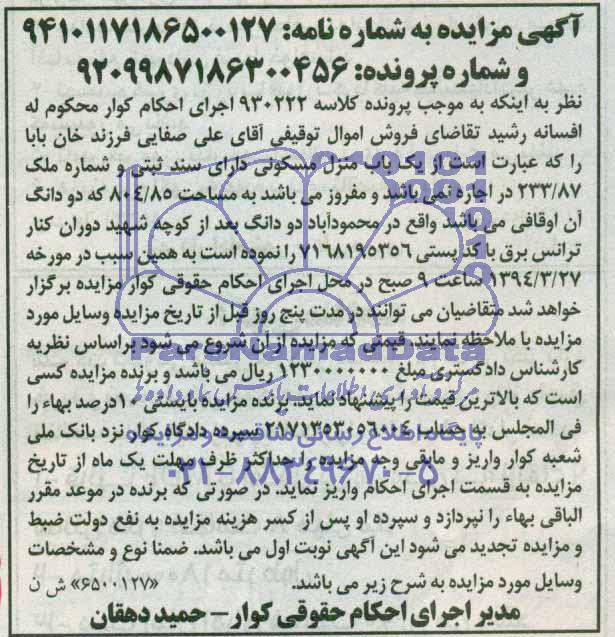 آگهی مزایده به شماره نامه: ۹۴۱۰۱۱۷۱۸۶۵۰۰۱۲۷
و شماره پرونده: ۹۲۰۹۹۸۷۱۸۶۳۰۰۴۵۶
نظر به اینکه به موجب پرونده کلاسه ۹۳۰۲۲۲ اجرای احکام کوار محکوم له
افسانه رشید تقاضای فروش اموال توقیفی آقای علی صفایی فرزند خان بابا
را که عبارت است از یک باب منزل مسکونی دارای سند ثبتی و شماره ملک
۲۳۳/۸۷ در اجاره نمی باشد و مفروز می باشد به مساحت ۸۰۴/۸۵ که دو دانگ
آن اوقافی می باشد واقع در محمودآباد دو دانگ بعد از کوچه شهید دوران کنار
ترانس برق با کد پستی ۷۱۶۸۱۹۵۳۵۶ را نموده است به همین سبب در مورخه
۱۳۹۴/۳/۲۷ ساعت ۹ صبح در محل اجرای احکام حقوقی کوار مزایده برگزار
خواهد شد متقاضیان می توانند در مدت پنج روز قبل از تاریخ مزایده وسایل مورد
مزایده با ملاحظه نمایند. قیمتی که مزایده از آن شروع می شود براساس نظریه
کارشناس دادگستری مبلغ ۱۲۳۰۰۰۰۰۰۰ ریال می باشد و برنده مزایده کسی
است که بالاترین قیمت را پیشنهاد نماید. برنده مزایده بایستی ۱۰درصد بهاء را
فی المجلس به حساب ۲۱۷۱۳۵۳۰۵۶۰۰۴ سپرده دادگاه کوار نزد بانک ملی
شعبه کوار واریز و مابقی وجه مزایده را حداکثر ظرف مهلت یک ماه از تاریخ
مزایده به قسمت اجرای احکام واریز نماید. در صورتی که برنده در موعد مقرر
الباقی بهاء را نپردازد و سپرده او پس از کسر هزینه مزایده به نفع دولت ضبط
و مزایده تجدید می شود این آگهی نوبت اول می باشد. ضمنا نوع و مشخصات
وسایل مورد مزایده به شرح زیر می باشد. «۶۵۰۰۱۲۷» ش ن
مدیر اجرای احکام حقوقی کوار – حمید دهقان
ParsNamadData
پایگاه اطلاع رسانی مناقصه و مزایده
۰۲۱-۸۸۳۴۹۶۷۰-۵